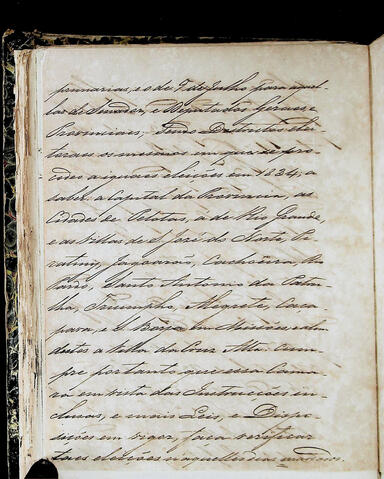 primarias, e o de 7 de Julho para aquel-
las de Senador, e Deputados Geraes e
Provinciais; Sendo Districtos elei-
toraes os mesmos em que se pro-
cedeo a iguaes eleições em 1834; a
saber: a Capital da Provincia, as
Cidades de Pelotas, a de Rio Grande,
e as Villas de S. José do Norte, Pi-
ratiny, Jaguarão, Cachoeira, Rio
Pardo, Santo Antonio da Patru-
lha, Triumpho, Alegrete, Caça-
pava, e S. Borja em Missões, além
destes a Villa da Cruz Alta. Cum-
pre portanto que essa Cama-
ra em vista das Instrucções in-
clusas, e mais Leis, e Dispo-
sições em vigor, faça verificar
taes eleições naquelles dias